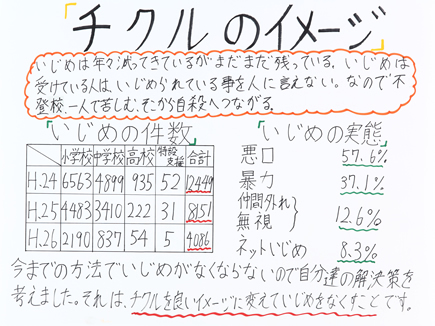 「チクルのイメージ」
いじめは年々減ってきているがまだまだ残っている。いじめは
受けている人は、いじめられている事を人に言えない。なので不
登校、一人で苦しむ、そから自殺へつながる。
「いじめの件数」
小学校 中学校 高校 特設支援 合計
H.24 6563 4899 935 52 12449
H.25 4483 3410 222 31 8151
H.26 2190 837 54 5 4086
「いじめの実態」
悪口 57.6%
暴力 37.1%
仲間外れ
無視 } 12.6%
ネットいじめ 8.3%
今までの方法でいじめがなくならないので自分達の解決策を
考えました。それは、チクルを良いイメージに変えていじめをなくすことです。